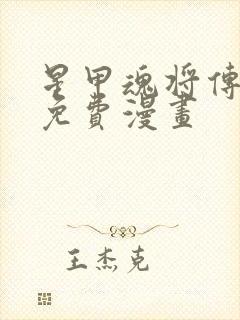 星甲魂將傳
免費漫畫
王杰克